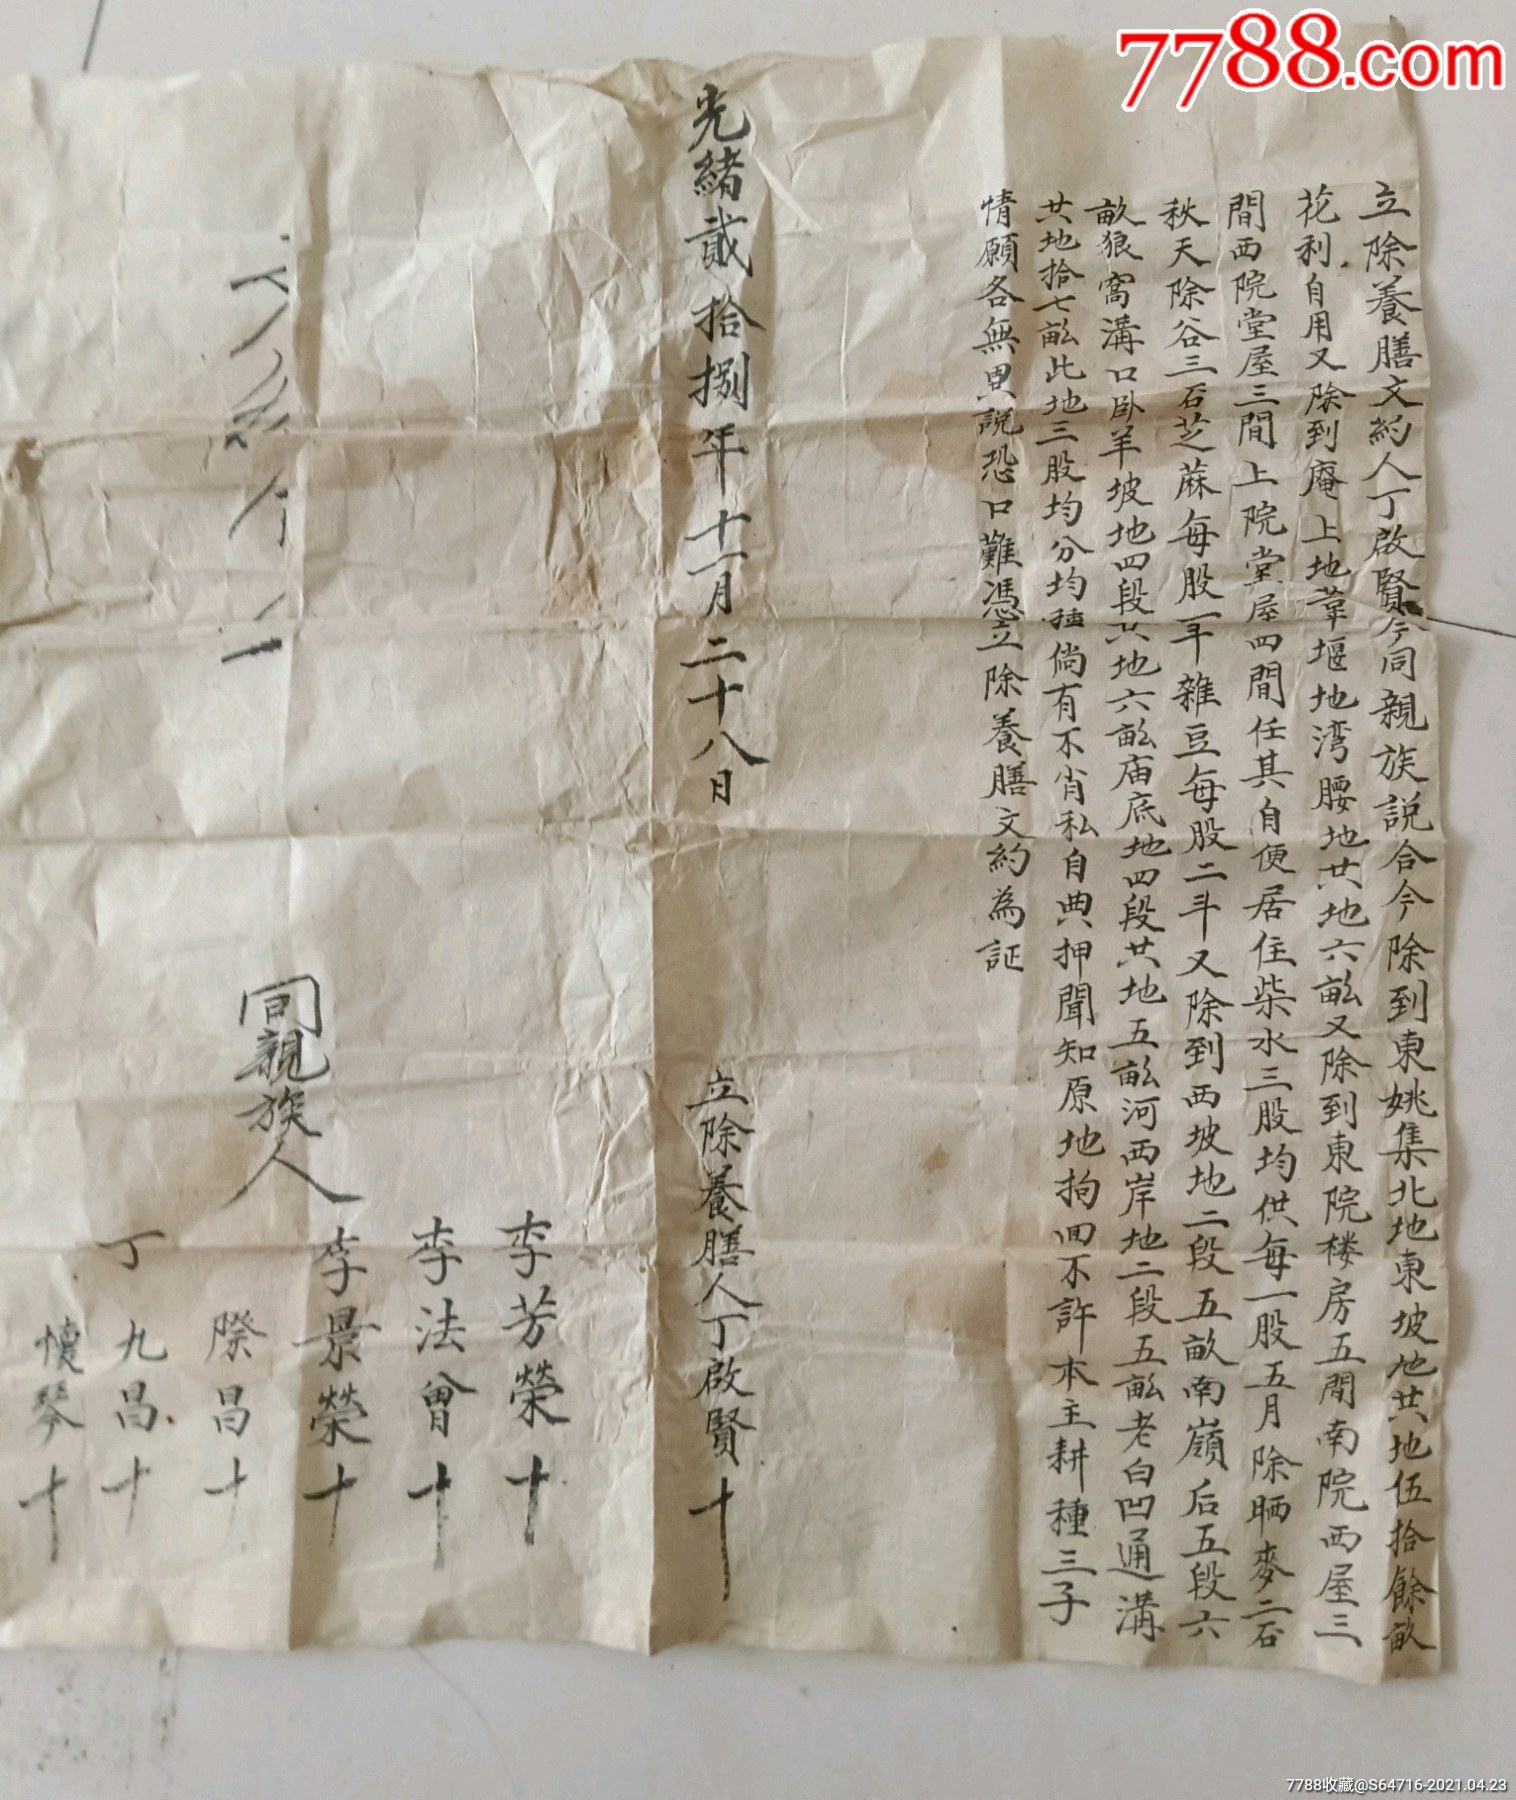 7788.com
立除養膳文約人丁啟賢今同親族説合今除到東姚集北地東坡地共地伍拾餘畝
花利自用又除到庵上地葦堰地湾腰地共地六畝又除到東院楼房五間南院西屋三
間西院堂屋三間上院堂屋四間任其自便居住柴水三股均供每一股五月除晒麥二石
秋天除谷三石芝蔴每股一斗雜豆每股二斗又除到西坡地二段五畝南嶺后五段六
畝狼窩溝口卧羊坡地四段共地六畝庙底地四段共地五畝河西岸地二段五畝老白凹通溝
共地拾七畝此地三股均分均種倘有不肖私自典押聞知原地拘回不許本主耕種三子
情願各無異説恐口難憑立除養膳文約為証
光緒貳拾捌年十一月二十八日
立除養膳人丁啟賢十
同親族人
李芳榮十
李法曾十
李景榮十
際昌十
丁九昌十
懷琴十
7788收藏@S64716-2021.04.23